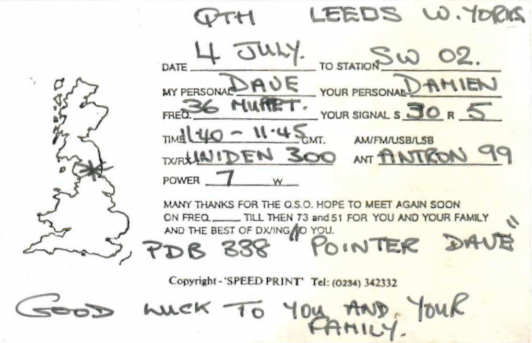 QTH LEEDS W. YORKS
DATE 4 JULY. TO STATION SW 02.
MY PERSONAL DAVE YOUR PERSONAL DAMIEN
FREQ. 36 MURET. YOUR SIGNAL S 30 R 5
TIME 11.40 - 11.45 GMT. AM/FM/USB/LSB
TX/RX UNIDEN 300 ANT ANTRON 99
POWER 7 W
MANY THANKS FOR THE Q.S.O. HOPE TO MEET AGAIN SOON
ON FREQ. TILL THEN 73 and 51 FOR YOU AND YOUR FAMILY
AND THE BEST OF DX/ING TO YOU.
PDB 338 "POINTER DAVE"
Copyright - 'SPEED PRINT' Tel: (0234) 342332
GOOD LUCK TO YOU AND YOUR
FAMILY.